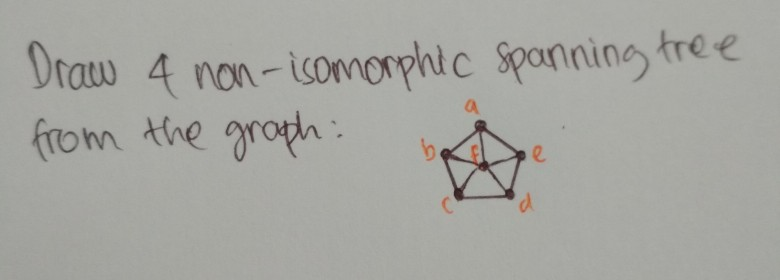 Draw 4 non-isomorphic spanning tree
from the graph:
a
b
f
e
c
d